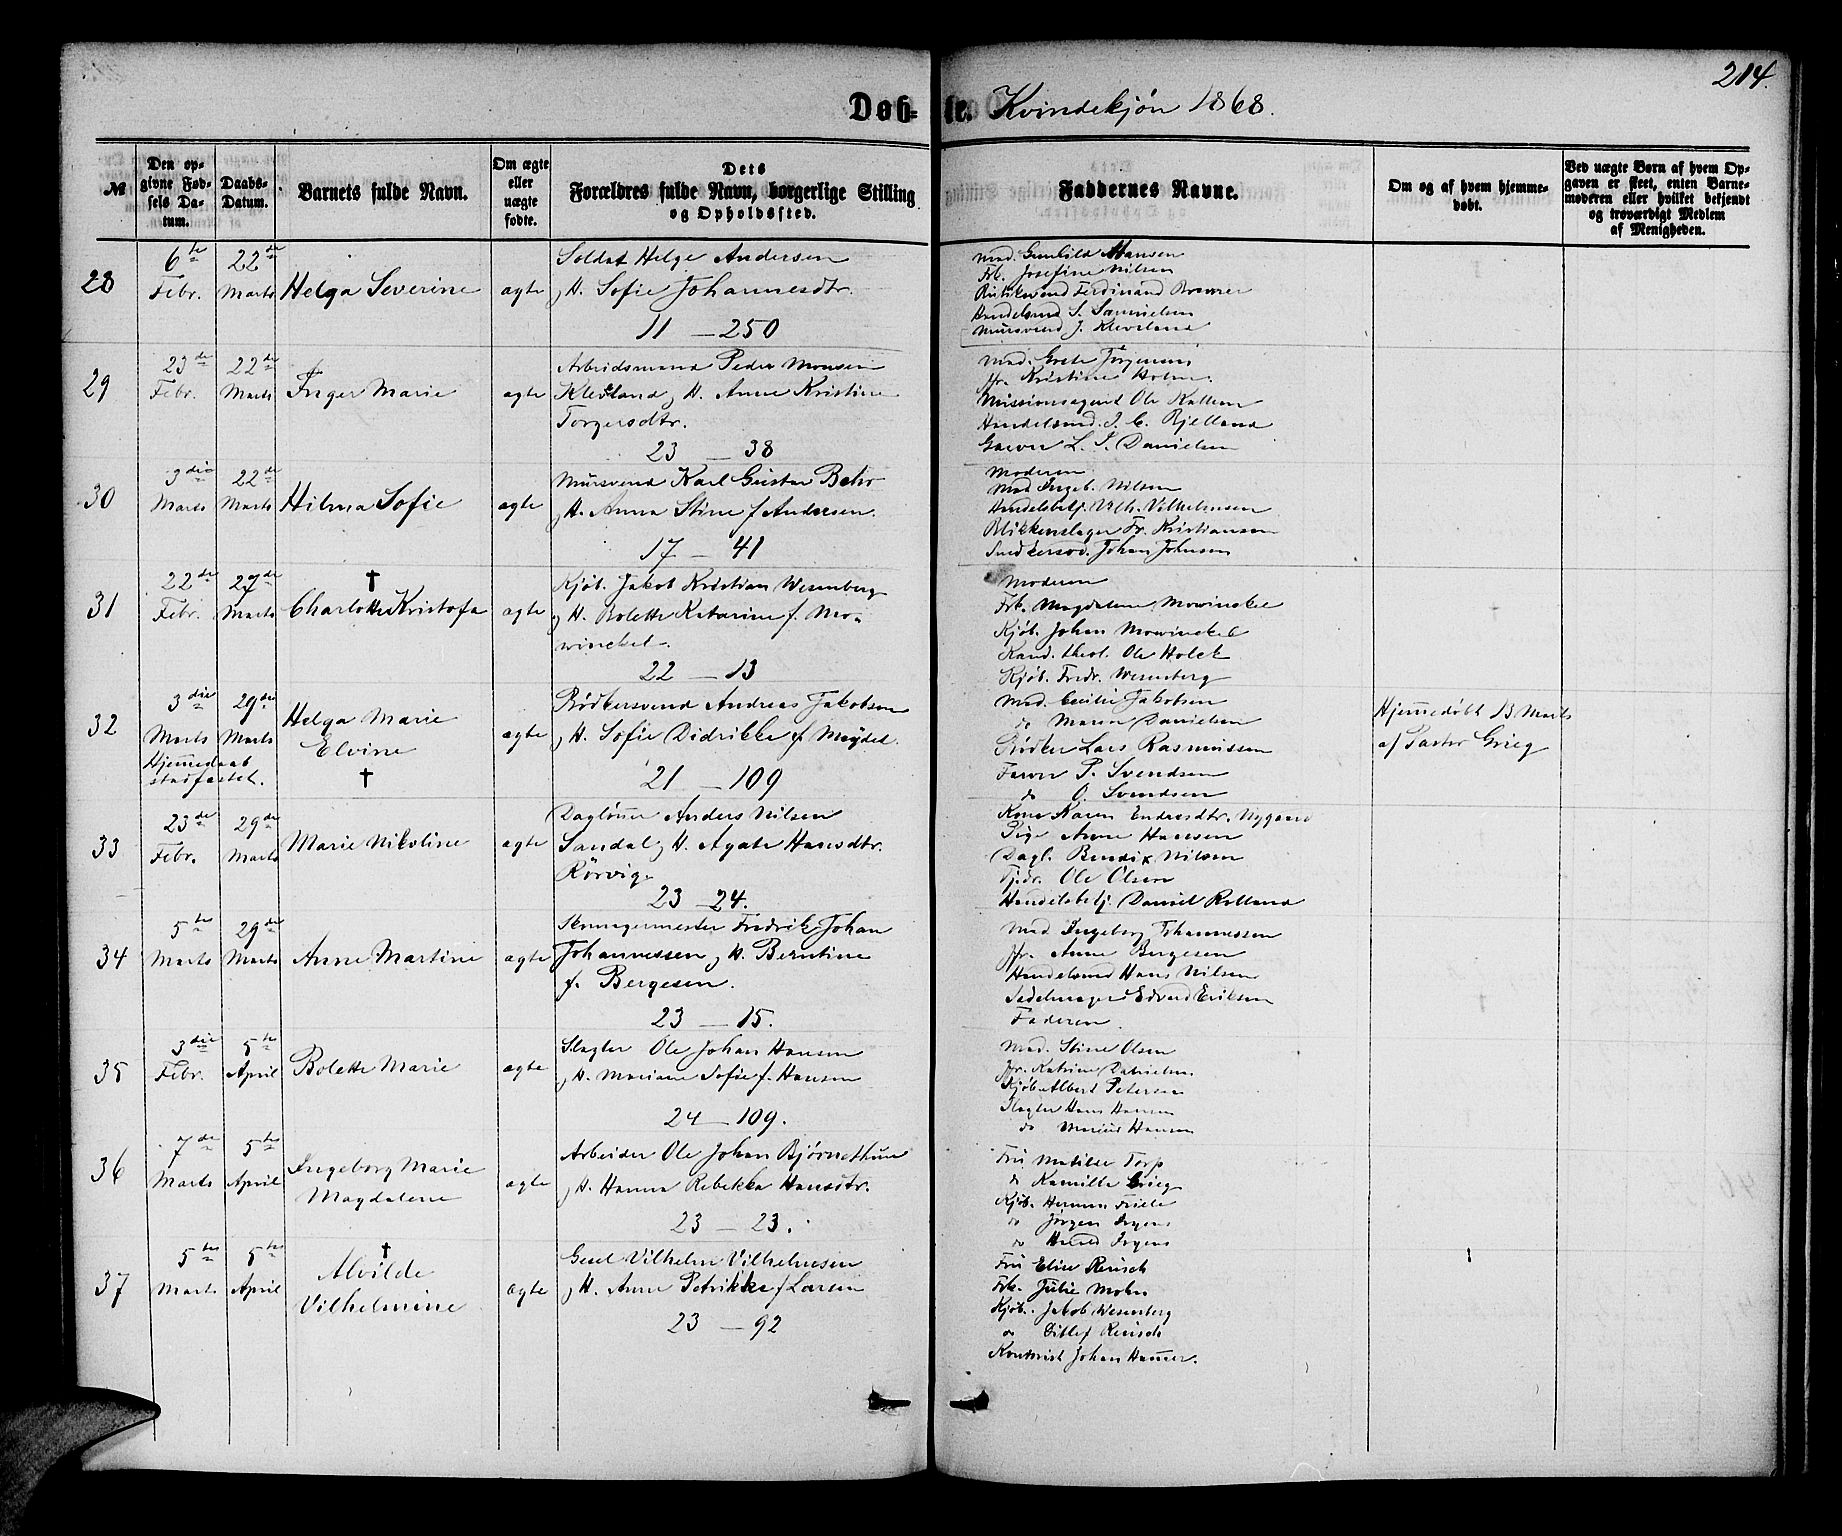 214.
Døb- te. Kvindekjøn 1868.
№
Den op-
givne Fød-
sels Da-
tum.
Daabs-
Datum.
Barnets fulde Navn.
Om ægte
eller
uægte
fødte.
Dets
Forældres fulde Navn, borgerlige Stilling
og Opholdssted.
Faddernes Navne.
Om og af hvem hjemme-
døbt.
Ved uægte Børn af hvem Op-
gaven er skeet, enten Barne-
moderen eller hvilket bekjendt
og troværdigt Medlem
af Menigheden.
28
6te
Febr.
22de
Marts
Helga Severine
ægte
Soldat Helge Andersen
og H. Sofie Johannesdtr.
11 — 250
Mad. Gunhild Hansen
Frk. Josefine Nilsen
Ferdinand
Handelsmd S. Samuelsen
Mursvend J. Klevland
29
23de
Febr.
22de
Marts
Inger Marie
ægte
Arbeidsmand Peder Monsen
Klevland og H. Anne Kristine
Torgersdtr.
23 — 38
Mad. Grete Jörgensen
Jfr. Kristine Holm.
Missionsagent Ole Kallem
Handelsmd. J. C. Bjelland
Garver L. J. Danielsen
30
3die
Marts
22de
Marts
Hilma Sofie
ægte
Mursvend Karl Gustav Behr
og H. Anna Stine f Andersen.
17 — 41
Moderen
Mad Ingeb. Nilsen
Handelsbetj. Vilh. Vilhelmsen
Blikkenslager Fr. Kristiansen
Snedkersvd. Johan Johnsen
31
22de
Febr.
27de
Marts
†
Charlotte Kristofa
ægte
Kjöb. Jakob Kristian Wesenberg
og H. Bolette Katarine f. Mo-
winckel.
22 — 13
Moderen
Frk. Magdalene Mowinckel
Kjöb. Johan Mowinckel
Kand. theol. Ole Holck
Kjöb. Fredr. Wesenberg
32
3die
Marts
29de
Marts
Hjemmedaab
stadfæstet.
Helga Marie
Elvine
†
ægte
Bödkersvend Andreas Jakobsen
og H. Sofie Didrikke f Meydel.
21 — 109
Mad. Cecilie Jakobsen
do Maren Danielsen
Bödker Lars Rasmussen
Farver P. Svendsen
do O. Svendsen
Hjemmedöbt 13 Marts
af Pastor Grieg
33
23de
Febr.
29de
Marts
Marie Nikoline
ægte
Daglönner Anders Nilsen
Sandal og H. Agate Hansdtr.
Rörvig.
23 — 24.
Kone Karen Endresdtr. Nygaard
Pige Anne Hansen
Dagl. Bendix Nilsen
Tjdr. Ole Olsen
Handelsbetj. Daniel Rolland
34
5te
Marts
29de
Marts
Anne Martine
ægte
Skomagermester Fredrik Johan
Johannessen og H. Berntine
f. Bergesen.
23 — 15.
Mad Ingeborg Johannessen
Jfr. Anne Bergesen
Handelsmd Hans Nilsen
Sadelmager Edvard Eriksen
Faderen.
35
3die
Febr.
5te
April
Bolette Marie
ægte
Slagter Ole Johan Hansen
og H. Mariane Sofie f. Hansen
24 — 109.
Mad. Stine Olsen
Jfr. Katrine Danielsen
Kjöb. Albert Petersen
Slagter Hans Hansen
do Marius Hansen
36
7de
Marts
5te
April
Ingeborg Marie
Magdalene
ægte
Arbeider Ole Johan Bjørnethun
og H. Hanna Rebekka Hansdtr.
23 — 23.
Fru Matilde Torp
do Kamilla Grieg
Kjöb. Herman Friele
do Jörgen Irgens
do Harald Irgens
37
5te
Marts
5te
April
†
Alvilde
Vilhelmine
ægte
Gesel Vilhelm Vilhelmsen
og H. Anne Petrikke f Larsen
23 — 92
Fru Elise Reusch
Frk. Julie Mohn
Kjöb. Jakob Wesenberg
do Ditlef Reusch
Kontorist Johan Hammer.